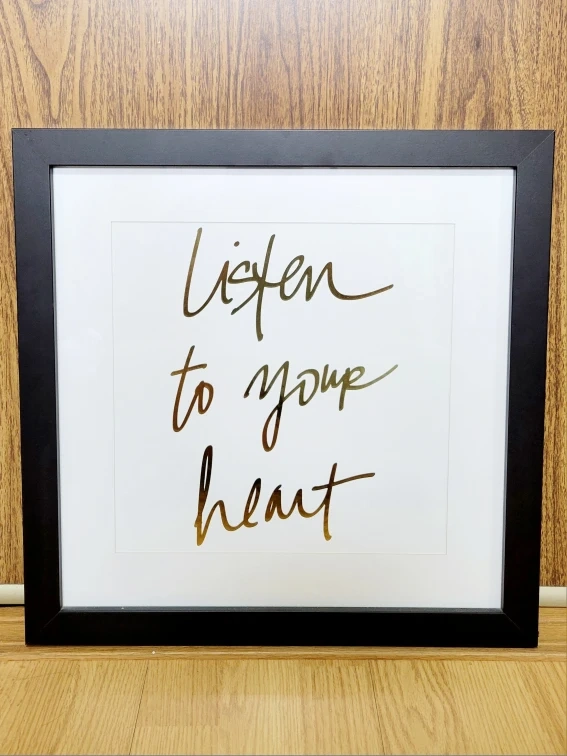 Listen
to your
heart